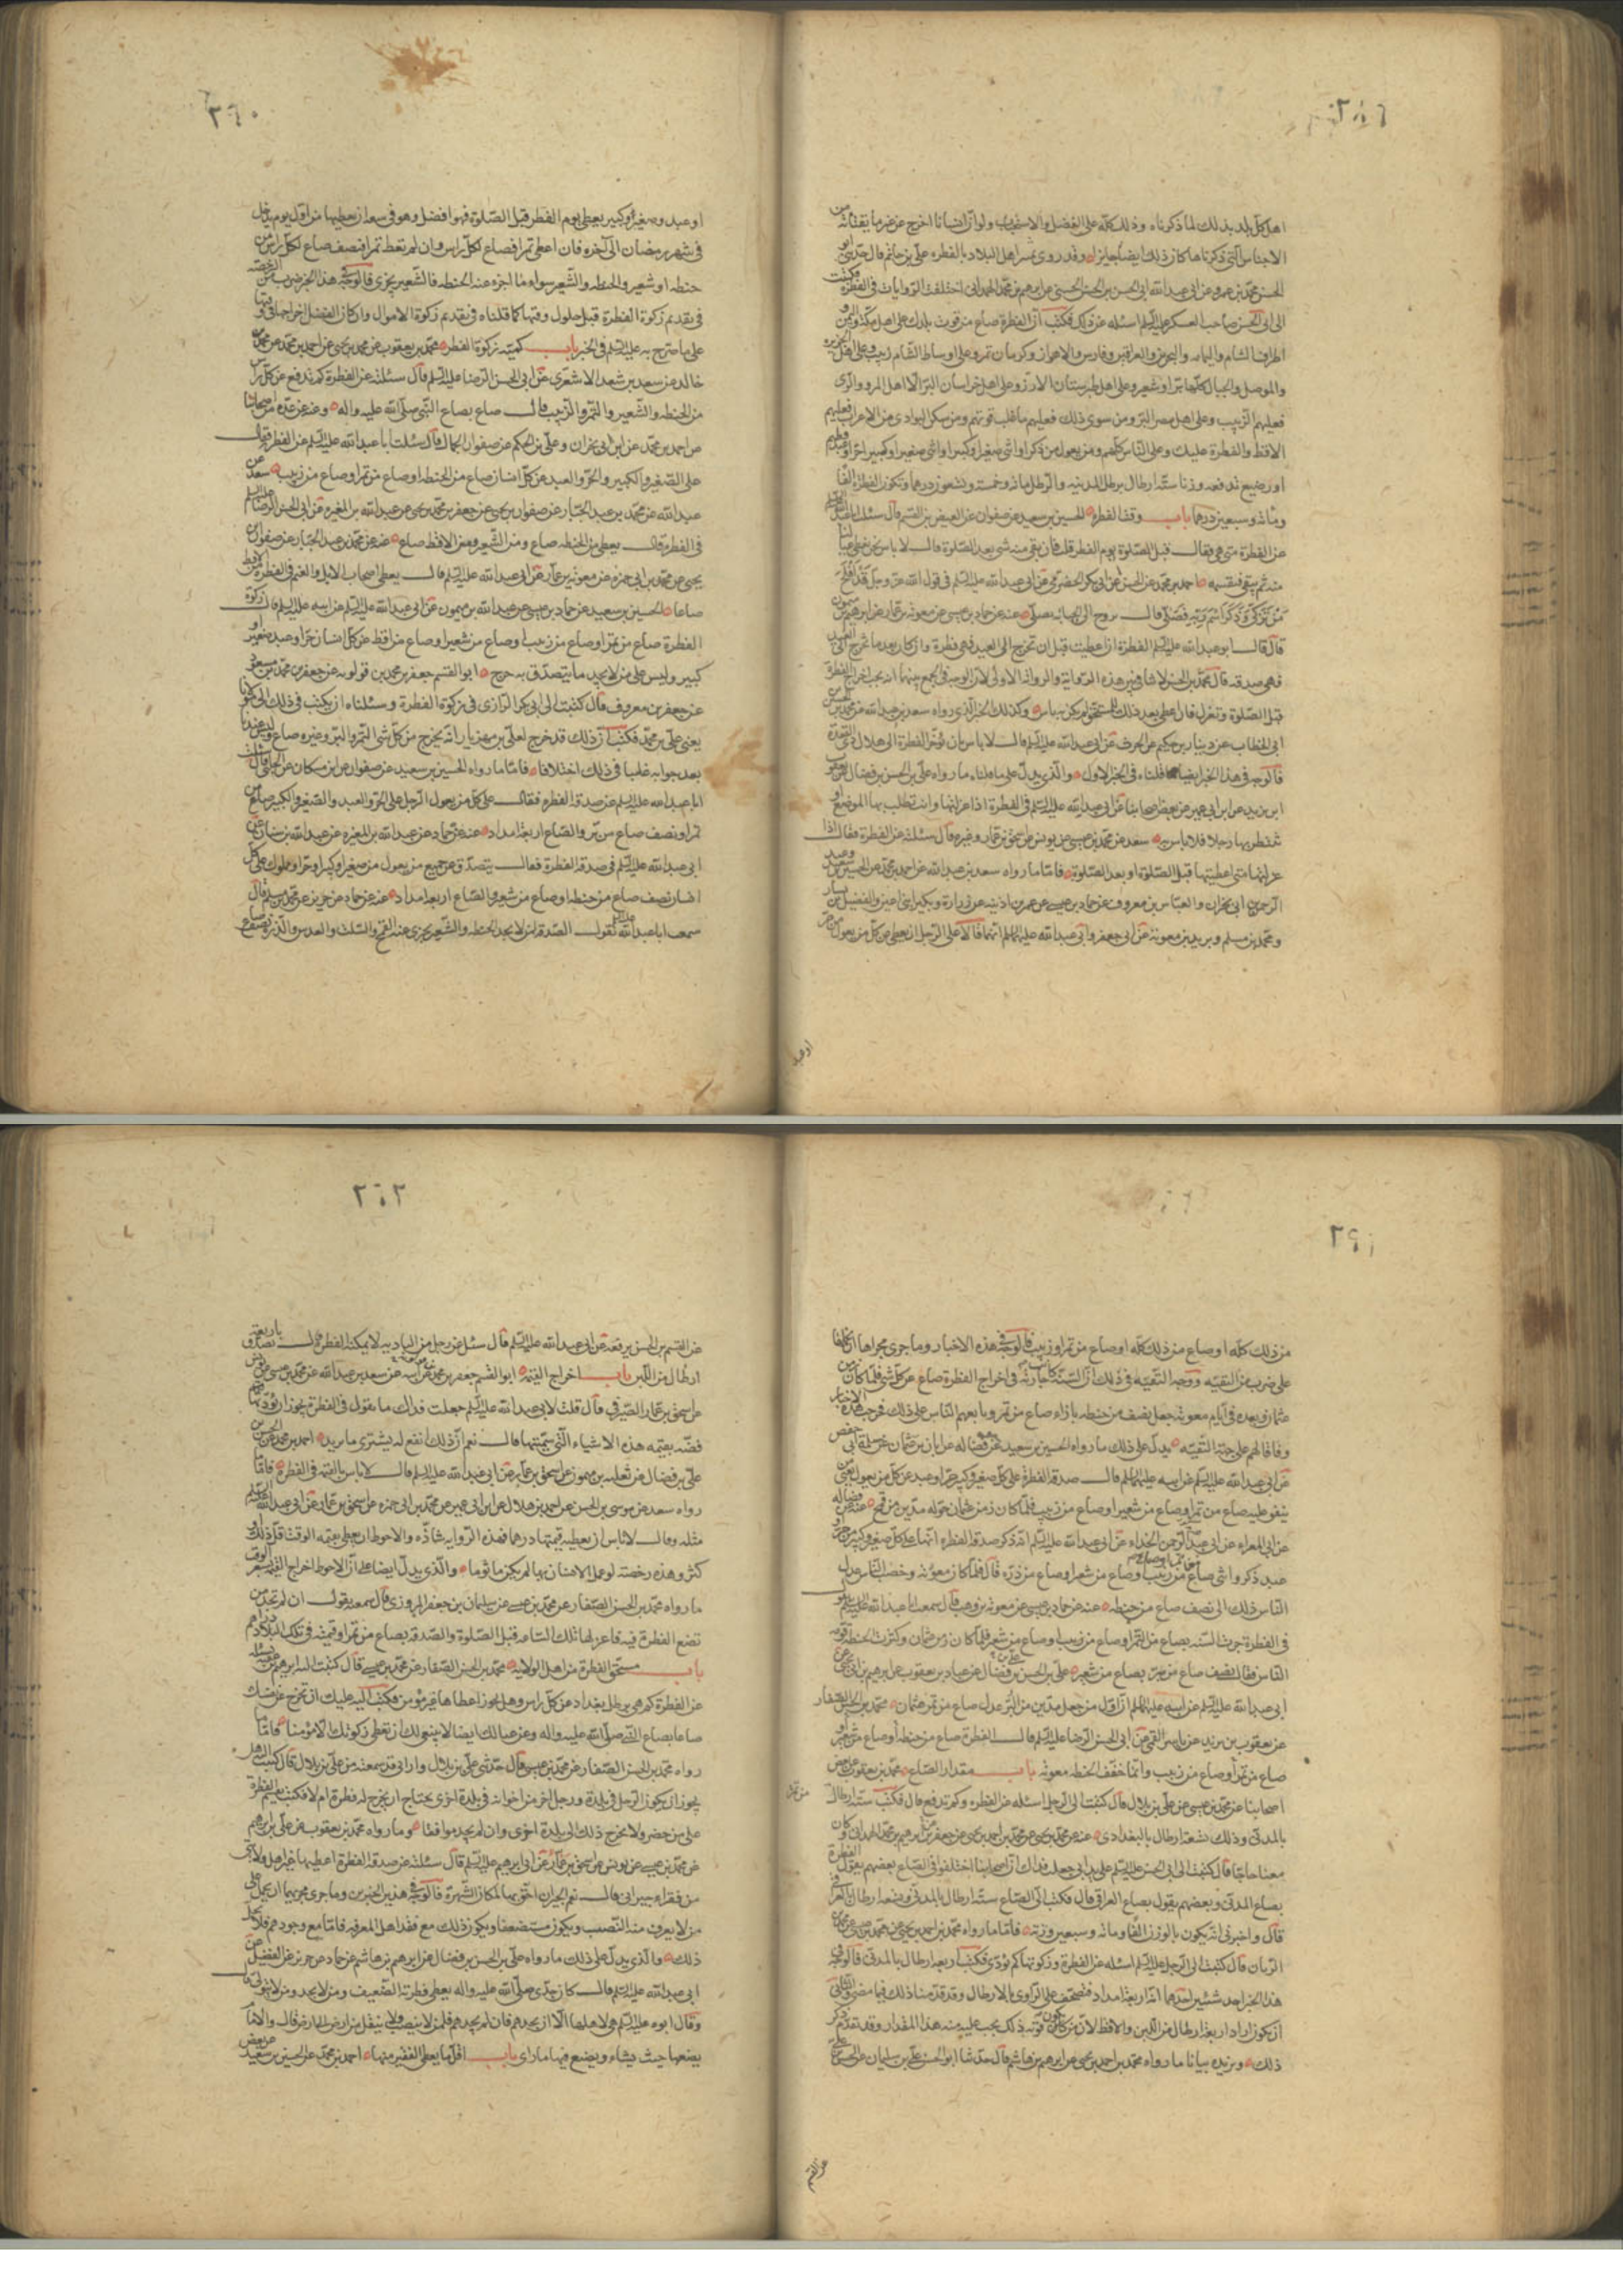 اهل كل بلد بذلك لما ذكرناه وذلك كله على الفضل والاستحباب ولو ان انسانا اخرج عن غير ما يقتاته من
الاجناس التي ذكرناها كان ذلك ايضا جايزا وقد روى تميز اهل البلاد بالفطرة علي بن حاتم قال حدثني ابو
الحسن محمد بن عمرو عن ابي عبد الله ابي الحسن بن الحسن الحسني عن ابرهيم بن محمد الهمداني اختلفت الروايات في الفطرة فكتبت
الى ابي الحسن صاحب العسكر عليه السلم اسئله عن ذلك فكتب ان الفطرة صاع من قوت بلدك على اهل مكة واليمن و
اطراف الشام واليمامه والبحرين والعراقين وفارس والاهواز وكرمان تمر وعلى اوساط الشام زبيب وعلى اهل الجزيره
والموصل والجبال كلها بر او شعير وعلى اهل طبرستان الارز وعلى اهل خراسان البر الا اهل المرو والرى
فعليهم الزبيب وعلى اهل مصر البر ومن سوى ذلك فعليهم ما غلب قوتهم ومن سكن البوادى من الاعراب فعليهم
الاقط والفطرة عليك وعلى الناس كلهم ومن يعول من ذكر او انثى صغير او كبير حرا او عبد فطيم
او رضيع تدفعه وزنا ستة ارطال برطل المدينه والرطل مائة وخمسة وتسعون درهما وتكون الفطرة الفا
ومائة وسبعين درهما باب وقت الفطرة الحسين بن سعيد عن صفوان عن العيص بن القسم قال سئلت ابا عبد الله عليه السلم
عن الفطرة متى هي فقال قبل الصلوة يوم الفطر قلت فان بقي منه شى بعد الصلوة قال لا باس نحن نعطى عيالنا
منه ثم يبقى فنقسمه احمد بن محمد عن الحسن عن ابي بكر الحضرمي عن ابي عبد الله عليه السلم في قول الله عز وجل قد افلح
من تزكى وذكر اسم ربه فصلى قال يروح الى الجبانه يصلى عنه عن حماد بن عيسى عن معوية بن عمار عن ابرهيم بن ميمون
قال قال ابو عبد الله عليه السلم الفطرة ان اعطيت قبل ان تخرج الى العيد فهي فطرة وان كان بعد ما تخرج الى العيد
فهي صدقة قال محمد بن الحسن لا تنافي بين هذه الرواية والرواية الاولى لان الوجه في الجمع بينهما انه يجب اخراج الفطرة
قبل الصلوة وتعزل فان اعطى بعد ذلك المستحق لم يكن به باس وكذلك الخبر الذي رواه سعد بن عبد الله عن محمد بن الحسين بن
ابي الخطاب عن دينار بن حكيم عن الحرث عن ابي عبد الله عليه السلم قال لا باس بان تؤخر الفطرة الى هلال ذى القعدة
فالوجه في هذا الخبر ايضا ما قلناه في الخبر الاول والذي يدل على ما قلناه ما رواه علي بن الحسن بن فضال عن يعقوب
ابن يزيد عن ابن ابي عمير عن بعض اصحابنا عن ابي عبد الله عليه السلم في الفطرة اذا عزلتها وانت تطلب بها الموضع او
تنتظر بها رجلا فلا باس به سعد عن محمد بن عيسى عن يونس عن اسحق بن عمار وغيره قال سئلته عن الفطرة فقال اذا
عزلتها متى اعطيتها قبل الصلوة او بعد الصلوة فاما ما رواه سعد بن عبد الله عن احمد بن محمد عن الحسين بن سعيد وعبد
الرحمن بن ابي نجران والعباس بن معروف عن حماد بن عيسى عن عمر بن اذينه عن زرارة وبكير ابني اعين والفضيل بن يسار
ومحمد بن مسلم وبريد بن معوية عن ابي جعفر وابي عبد الله عليهما السلم انهما قالا على الرجل ان يعطى عن كل من يعول من حر
او عبد
٣٦٠
او عبد وصغير وكبير يعطى يوم الفطر قبل الصلوة فهو افضل وهو في سعة ان يعطيها من اول يوم يدخل
في شهر رمضان الى آخره فان اعطى تمرا فصاع لكل راس وان لم تعط تمرا فنصف صاع لكل راس من
حنطه او شعير والحنطه والشعير سواء ما اجزء عنه الحنطه فالشعير يجزى فالوجه في هذا الخبر ضرب من الرخصة
في تقديم زكوة الفطرة قبل حلول وقتها كما قلناه في تقديم زكوة الاموال وان كان الفضل اخراجها في وقتها
على ما صرح به عليه السلم في الخبر باب كمية زكوة الفطره محمد بن يعقوب عن محمد بن يحيى عن احمد بن محمد عن محمد بن
خالد عن سعد بن سعد الاشعرى عن ابي الحسن الرضا عليه السلم قال سئلته عن الفطرة كم تدفع عن كل راس
من الحنطه والشعير والتمر والزبيب قال صاع بصاع النبي صلى الله عليه واله وعنه عن عدة من اصحابنا
عن احمد بن محمد عن ابن ابي نجران وعلي بن الحكم عن صفوان الجمال قال سئلت ابا عبد الله عليه السلم عن الفطرة فقال
على الصغير والكبير والحر والعبد عن كل انسان صاع من الحنطه او صاع من تمر او صاع من زبيب سعد بن
عبد الله عن محمد بن عبد الجبار عن صفوان بن يحيى عن جعفر بن محمد بن يحيى عن عبد الله بن المغيره عن ابي الحسن الرضا عليه السلم
في الفطره قال يعطى من الحنطه صاع ومن الشعير ومن الاقط صاع عنه عن محمد بن عبد الجبار عن صفوان بن
يحيى عن محمد بن ابي حمزه عن معوية بن عمار عن ابي عبد الله عليه السلم قال يعطى اصحاب الابل والغنم في الفطرة من الاقط
صاعا الحسين بن سعيد عن حماد بن عيسى عن عبد الله بن ميمون عن ابي عبد الله عليه السلم عن ابيه عليه السلم قال زكوة
الفطرة صاع من تمر او صاع من زبيب او صاع من شعير او صاع من اقط عن كل انسان حر او عبد صغير او
كبير وليس على من لا يجد ما يتصدق به حرج ابو القسم جعفر بن محمد بن قولويه عن جعفر بن محمد بن مسعود
عن جعفر بن معروف قال كتبت الى ابي بكر الرازى في زكوة الفطرة وسئلناه ان يكتب في ذلك الى مولانا
يعنى علي بن محمد فكتب ان ذلك قد خرج لعلي بن مهزيار انه يخرج من كل شى التمر والبر وغيره صاع وليس عندنا
بعد جوابه علينا في ذلك اختلاف فاما ما رواه الحسين بن سعيد عن صفوان عن ابن مسكان عن الحلبي قال سئلت
ابا عبد الله عليه السلم عن صدقة الفطره فقال على كل من يعول الرجل على الحر والعبد والصغير والكبير صاع من
تمر او نصف صاع من بر والصاع اربعة امداد عنه عن حماد عن عبد الله بن المغيره عن عبد الله بن سنان عن
ابي عبد الله عليه السلم في صدقة الفطرة فقال يتصدق عن جميع من يعول من صغير او كبير او حر او مملوك على كل
انسان نصف صاع من حنطه او صاع من شعير والصاع اربعة امداد عنه عن حماد عن حريز عن محمد بن مسلم قال
سمعت ابا عبد الله عليه السلم يقول الصدقة لمن لا يجد الحنطه والشعير يجزى عنه القمح والسلت والعدس والذرة نصف صاع
٢٩١
من ذلك كله او صاع من ذلك كله او صاع من تمر او زبيب فالوجه في هذه الاخبار وما جرى مجراها ان نحملها
على ضرب من التقيه ووجه التقيه في ذلك ان السنة كانت جارية في اخراج الفطرة صاع عن كل شى فلما كان زمن
عثمان وبعده في ايام معوية جعل نصف من حنطه بازاء صاع من تمر وتابعهم الناس على ذلك فخرجت هذه الاخبار
وفاقا لهم على جهة التقيه يدل على ذلك ما رواه الحسين بن سعيد عن فضاله عن ابان بن عثمان عن سلمة ابي حفص
عن ابي عبد الله عليه السلم عن ابيه عليهما السلم قال صدقة الفطرة على كل صغير وكبير حر او عبد عن كل من يعول يعنى من
ينفق عليه صاع من تمر او صاع من شعير او صاع من زبيب فلما كان زمن عثمان حوله مدين من قمح عنه عن فضاله
عن ابي المعزا عن ابي عبد الرحمن الحذاء عن ابي عبد الله عليه السلم انه ذكر صدقة الفطره انها على كل صغير وكبير من حر او
عبد ذكر وانثى صاع من تمر او صاع من زبيب او صاع من شعير او صاع من ذره قال فلما كان معوية وخصب الناس عدل
الناس ذلك الى نصف صاع من حنطه عنه عن حماد بن عيسى عن معوية بن وهب قال سمعت ابا عبد الله عليه السلم يقول
في الفطرة جرت السنه بصاع من التمر او صاع من زبيب او صاع من شعير فلما كان زمن عثمان وكثرت الحنطه قومه
الناس فقال نصف صاع من بر بصاع من شعير علي بن الحسن بن فضال عن عباد بن يعقوب عن ابرهيم بن ابي يحيى عن
ابي عبد الله عليه السلم عن ابيه عليهما السلم ان اول من جعل مدين من البر عدل صاع من تمر عثمان محمد بن الحسن الصفار
عن يعقوب بن يزيد عن ياسر القمي عن ابي الحسن الرضا عليه السلم قال الفطرة صاع من حنطه او صاع من شعير او
صاع من تمر او صاع من زبيب وانما خفف الحنطه معوية باب مقدار الصاع محمد بن يعقوب عن بعض
اصحابنا عن محمد بن عيسى عن علي بن بلال قال كتبت الى الرجل اسئله عن الفطره وكم تدفع قال فكتب ستة ارطال من تمر
بالمدني وذلك تسعة ارطال بالبغدادى عنه عن محمد بن يحيى عن محمد بن احمد بن يحيى عن جعفر بن ابرهيم بن محمد الهمداني وكان
معنا حاجا قال كتبت الى ابي الحسن عليه السلم على يد ابي جعلت فداك ان اصحابنا اختلفوا في الصاع بعضهم يقول الفطرة
بصاع المدني وبعضهم يقول بصاع العراقي قال فكتب الى الصاع ستة ارطال بالمدني وتسعة ارطال بالعراقي
قال واخبرني انه يكون بالوزن الفا ومائة وسبعين وزنة فاما ما رواه محمد بن احمد بن يحيى عن محمد بن عيسى عن محمد بن
الريان قال كتبت الى الرجل عليه السلم اسئله عن الفطرة وزكوتها كم تؤدى فكتب اربعة ارطال بالمدني فالوجه في
هذا الخبر احد شيئين احدهما انه اراد اربعة امداد فتصحف على الراوى بالارطال وقد قدمنا ذلك فيما مضى والثاني
ان يكون اراد اربعة ارطال من اللبن والاقط لان من كان قوته ذلك يجب عليه منه هذا المقدار وقد تقدم ذكر
ذلك ويزيده بيانا ما رواه محمد بن احمد بن يحيى عن ابرهيم بن هاشم قال حدثنا ابو الحسن علي بن سليمان عن الحسن بن علي
عن القسم
٢٩٢
عن القسم بن الحسن رفعه عن ابي عبد الله عليه السلم قال سئل عن رجل من الباديه لا يمكنه الفطرة قال تصدق باربعة
ارطال من اللبن باب اخراج القيمة ابو القسم جعفر بن محمد عن ابيه عن سعد بن عبد الله عن محمد بن عيسى عن يونس
عن اسحق بن عمار الصيرفي قال قلت لابي عبد الله عليه السلم جعلت فداك ما تقول في الفطرة يجوز ان نؤديها
فضه بقيمه هذه الاشياء التي سميتها قال نعم ان ذلك انفع له يشترى ما يريد احمد بن محمد عن الحسن بن
علي بن فضال عن ثعلبه بن ميمون عن اسحق بن عمار عن ابي عبد الله عليه السلم قال لا باس بالقيمه في الفطره فاما ما
رواه سعد عن موسى بن الحسن عن احمد بن هلال عن ابن ابي عمير عن محمد بن ابي حمزه عن اسحق بن عمار عن ابي عبد الله عليه السلم
مثله وقال لا باس ان يعطيه قيمتها درهما فهذه الروايه شاذه والاحوط ان يعطى بقيمه الوقت قل ذلك او
كثر وهذه رخصة لو عمل الانسان بها لم يكن ماثوما والذي يدل ايضا على ان الاحوط اخراج القيمه بسعر الوقت
ما رواه محمد بن الحسن الصفار عن محمد بن عيسى عن سليمان بن جعفر المروزى قال سمعته يقول ان لم تجد من
تضع الفطرة فيه فاعزلها تلك الساعه قبل الصلوة والصدقة بصاع من تمر او قيمته في تلك البلاد دراهم
باب مستحق الفطرة من اهل الولاية محمد بن الحسن الصفار عن محمد بن عيسى قال كتبت اليه ابرهيم بن عقبه يسئله
عن الفطرة كم هي برطل بغداد عن كل راس وهل يجوز اعطاها غير مؤمن فكتب اليه عليك ان تخرج عن نفسك
صاعا بصاع النبي صلى الله عليه واله وعن عيالك ايضا لا ينبغي لك ان تعطى زكوتك الا مؤمنا فاما ما
رواه محمد بن الحسن الصفار عن محمد بن عيسى قال حدثني علي بن بلال واراني قد سمعته من علي بن بلال قال كتبت اليه هل
يجوز ان يكون الرجل في بلدة ورجل اخر من اخوانه في بلدة اخرى يحتاج ان يخرج له فطرة ام لا فكتب يقسم الفطرة
على من حضر ولا يخرج ذلك الى بلدة اخرى وان لم يجد موافقا وما رواه محمد بن يعقوب عن علي بن ابرهيم
عن محمد بن عيسى عن يونس عن اسحق بن عمار عن ابي ابرهيم عليه السلم قال سئلته عن صدقة الفطرة اعطيها غير اهل ولايتى
من فقراء جيراني قال نعم الجيران احق بها لمكان الشهرة فالوجه في هذين الخبرين وما جرى مجريهما ان نحمل على
من لا يعرف منه النصب ويكون مستضعفا ويكون ذلك مع فقد اهل المعرفه فاما مع وجودهم فلا يجوز
ذلك والذي يدل على ذلك ما رواه علي بن الحسن بن فضال عن ابرهيم بن هاشم عن حماد عن حريز عن الفضيل عن
ابي عبد الله عليه السلم قال كان جدى صلى الله عليه واله يعطى فطرته الضعيف ومن لا يجد ومن لا يتولى قال
وقال ابوه عليه السلم هي لاهلها الا ان لا يجدهم فان لم يجدهم فلمن لا ينصب ولا ينقل من ارض الى ارض قال والامام
يضعها حيث يشاء ويصنع فيها ما راى باب اقل ما يعطى الفقير منها احمد بن محمد عن الحسين بن سعيد عن بعض